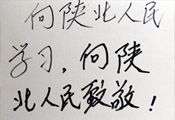 向陕北人民
学习，向陕
北人民致敬！